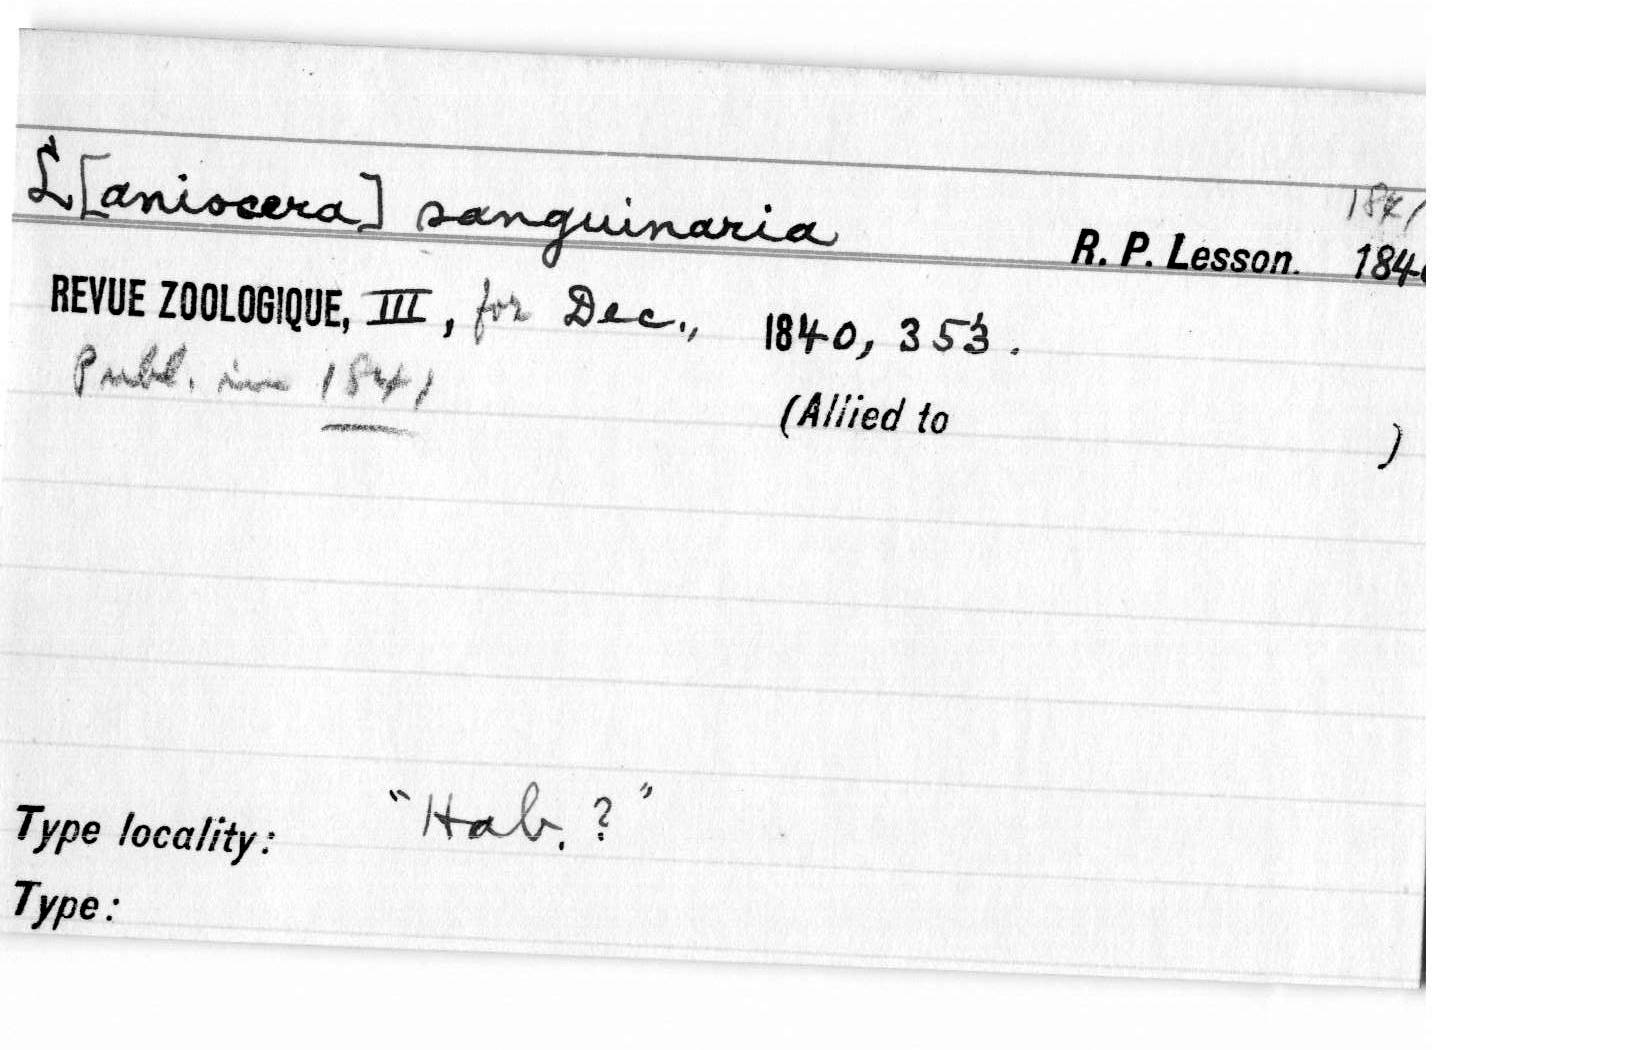 L[aniocera] sanguinaria
1841
R. P. Lesson. 184
REVUE ZOOLOGIQUE, III, for Dec., 1840, 353.
Publ. in 1841
(Allied to )
Type locality: "Hab. ?"
Type: